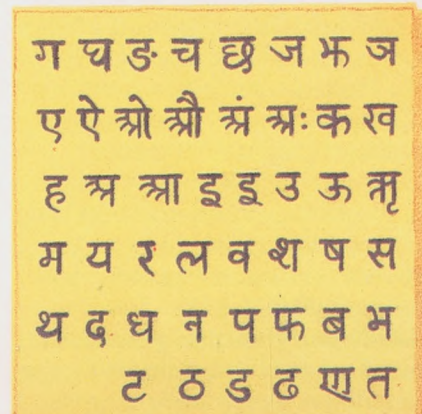 ग घ ङ च छ ज झ ञ
ए ऐ ओ औ अं अः क ख
ह अ आ इ इ उ ऊ ऋ
म य र ल व श ष स
थ द ध न प फ ब भ
ट ठ ड ढ ण त